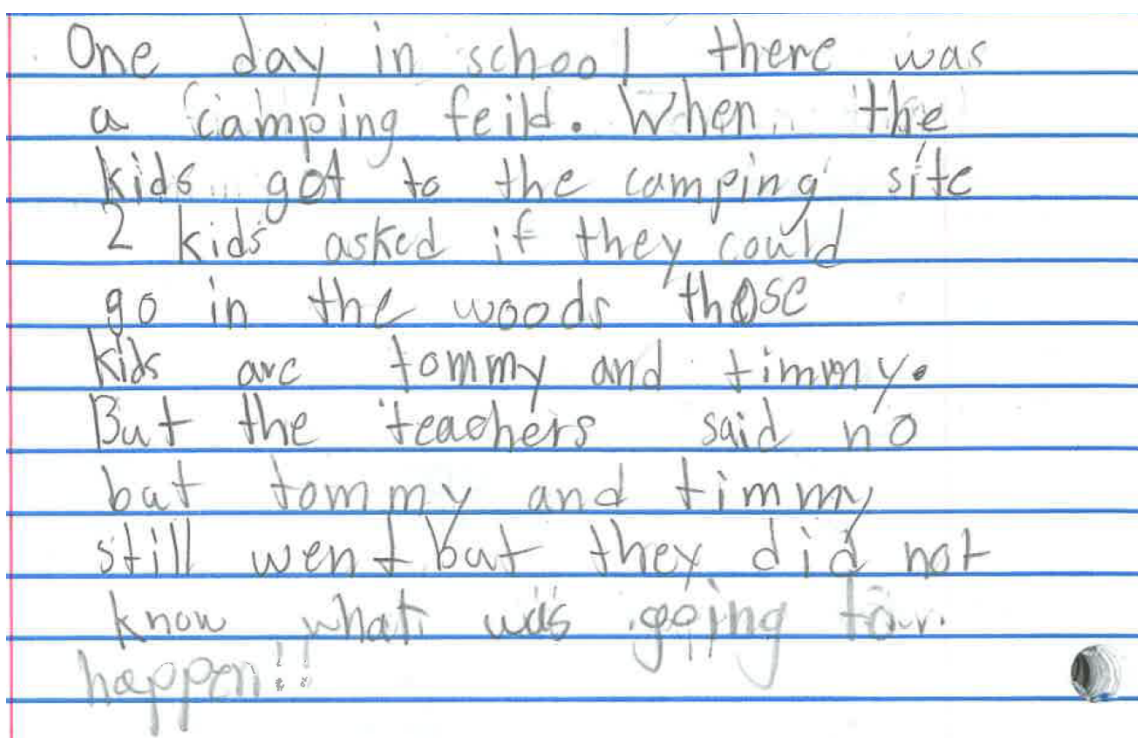 One day in school there was
a camping feild. When the
kids got to the camping site
2 kids asked if they could
go in the woods those
kids are tommy and timmy.
But the teachers said no
but tommy and timmy
still went but they did not
know what was going to
happen!!